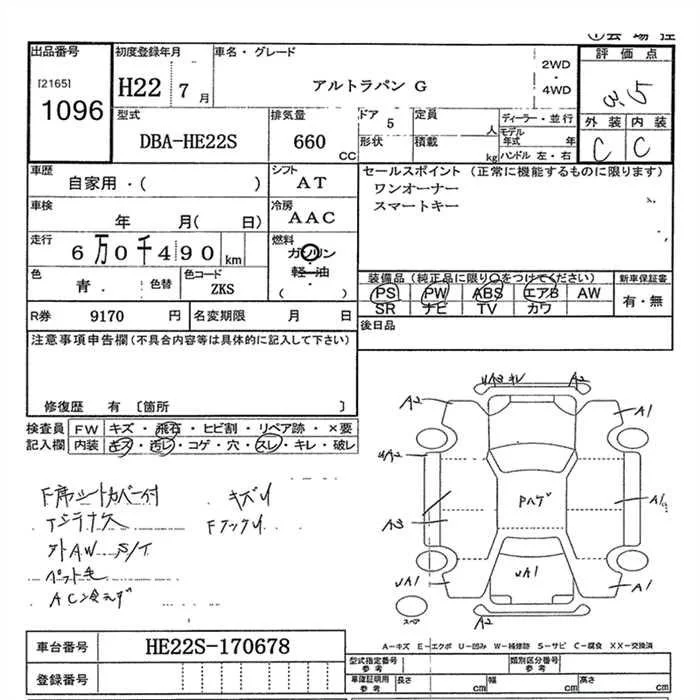 出品番号 初度登録年月 車名・グレード 評価点
[2165] 1096 H22 7月 アルトラパン G 2WD・4WD 3.5
型式 排気量 ドア 5 定員 人 ディーラー・並行 外装 内装
DBA-HE22S 660 CC 形状 積載 kg モデル年式 年 ハンドル 左・右 C C
車歴 シフト セールスポイント(正常に機能するものに限ります)
自家用・( ) AT ワンオーナー
車検 冷房 スマートキー
年 月( 日) AAC
走行 燃料
6万0千490km ガソリン・軽油
色 色替 色コード ( ) 装備品(純正品に限り○をつけてください) 新車保証書
青・ ZKS PS PW ABS エアB AW 有・無
R券 9170 円 名変期限 月 日 SR ナビ TV カワ
注意事項申告欄(不具合内容等は具体的に記入して下さい) 後日品
修復歴 有 〔箇所 〕
検査員 FW キズ・飛石・ヒビ割・リペア跡・×要
記入欄 内装 キズ・汚レ・コゲ・穴・スレ・キレ・破レ
A2 UA3 A2 A1
UA2
F席シートカバー付 キズ
A3 Pハゲ A1
外AW S/T
ペット毛
UA1 UA1 A1
スペア A2
車台番号 HE22S-170678 A-キズ E-エクボ U-凹み W-補修跡 S-サビ C-腐食 XX-交換済
型式指定番号 参考 類別区分番号 参考
登録番号 車庫証明用 参考 長さ cm 幅 cm 高さ cm